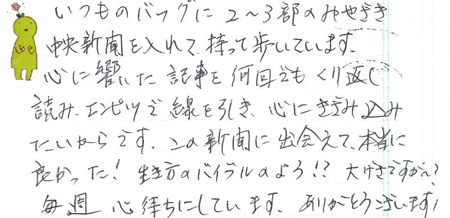 いつものバッグに2〜3部のみやざき
中央新聞を入れて、持って歩いています。
心に響いた記事を何回でもくり返し
読み、エンピツで線を引き、心にきざみ込み
たいからです。この新聞に出会えて、本当に
良かった！ 生き方のバイブルのよう!? 大げさですが？
毎週 心待ちにしています。ありがとうございます！